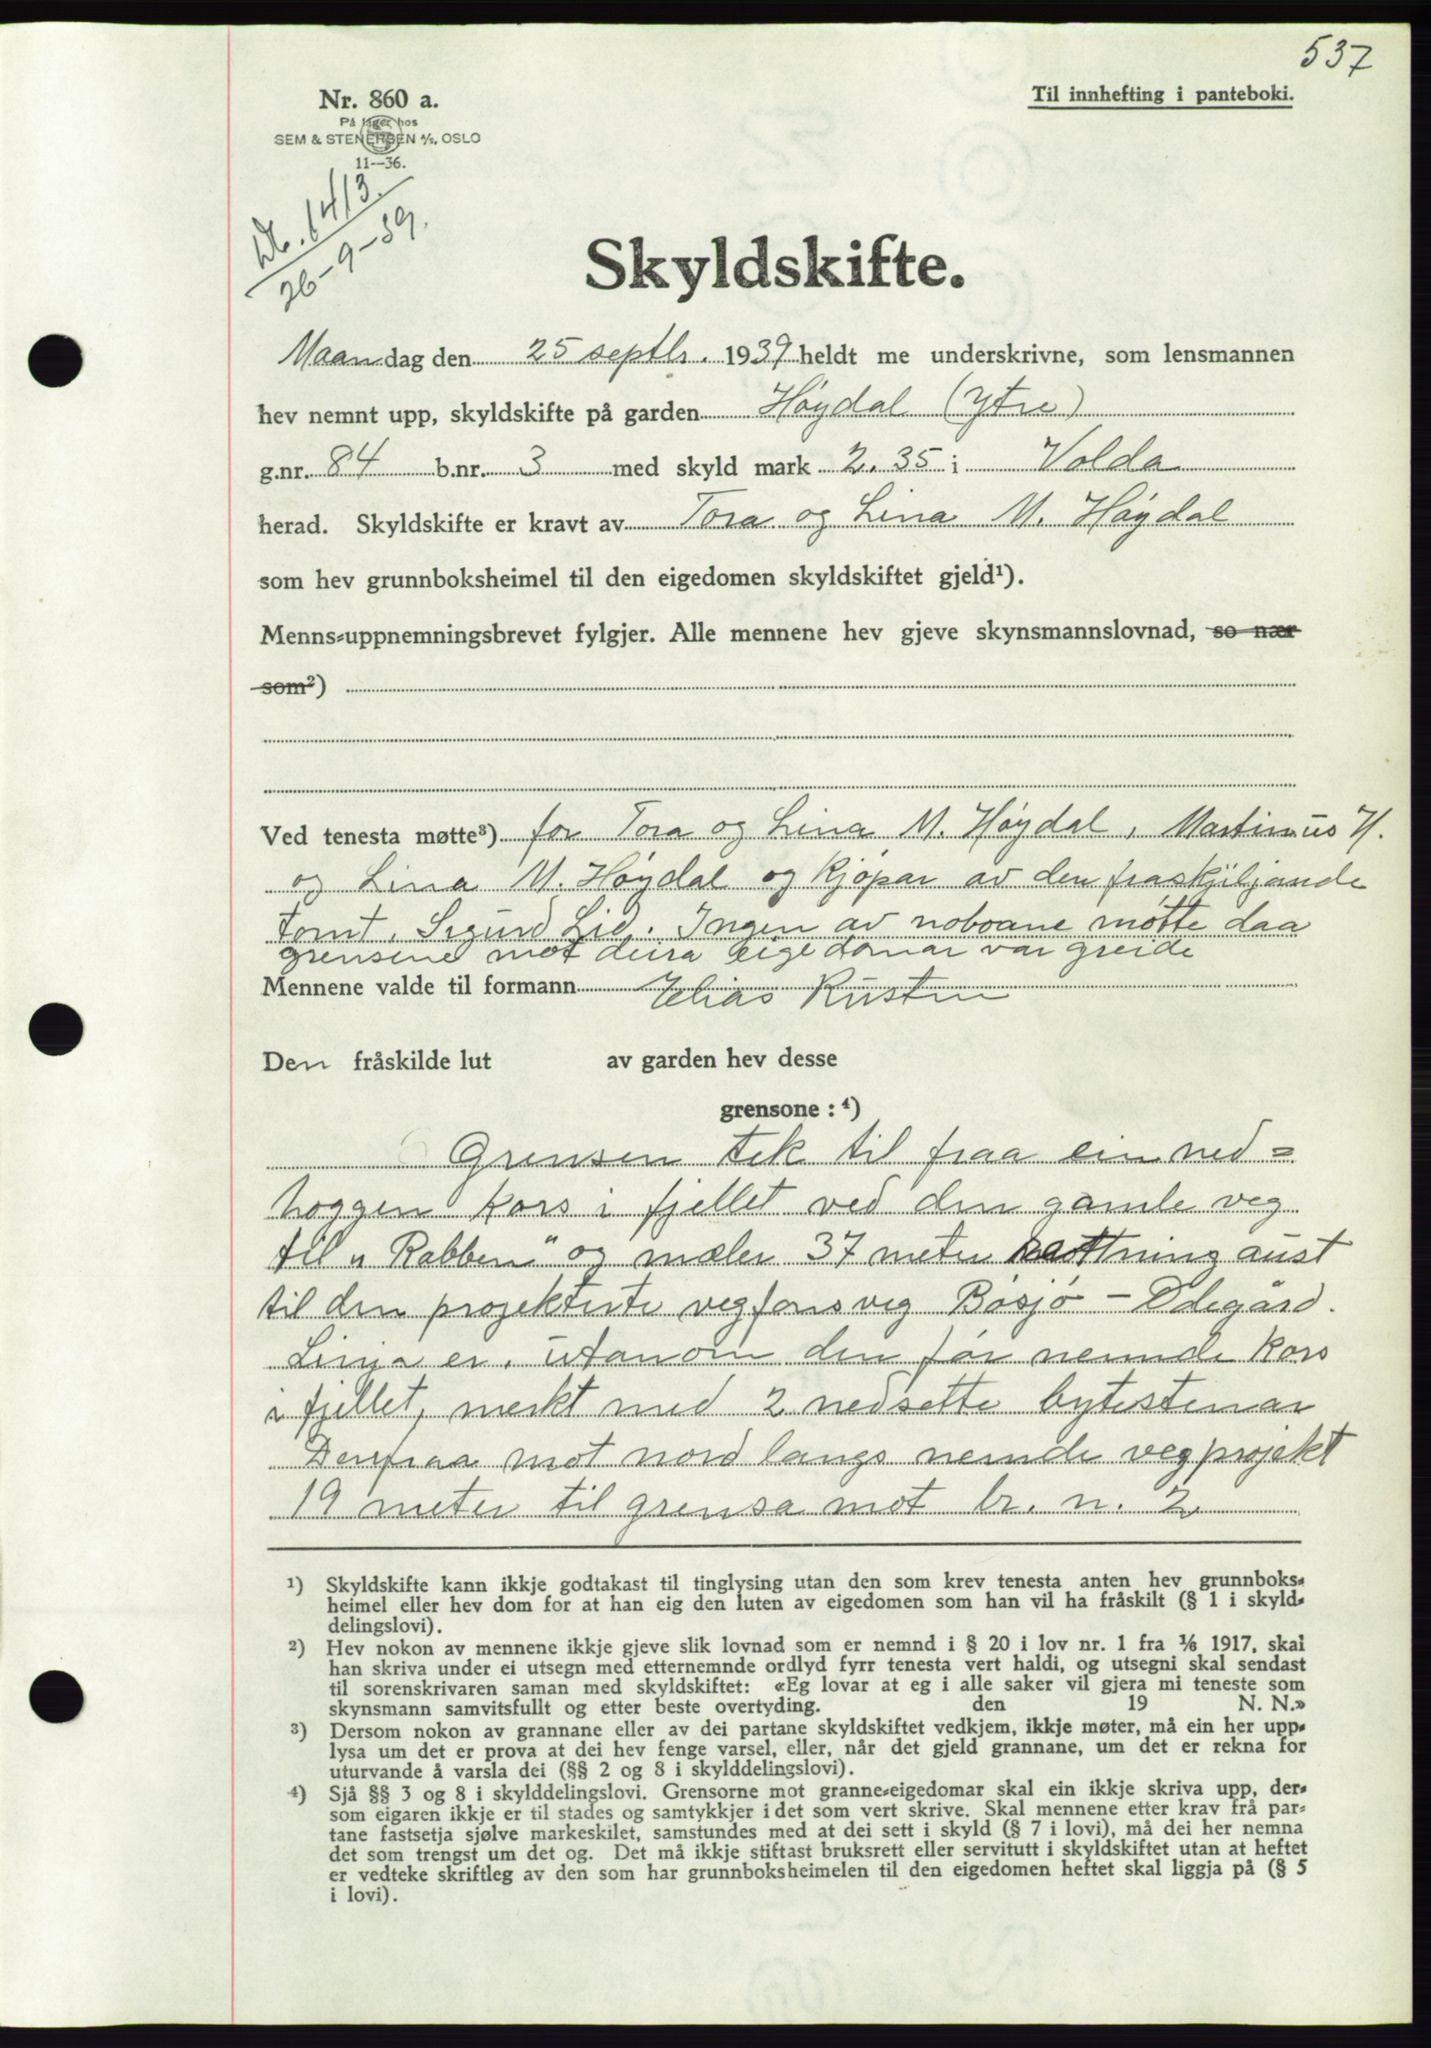 537
Nr. 860 a.
Til innhefting i panteboki.
På lager hos
SEM & STENERSEN A/S, OSLO
11—36.
Db. 1413.
26-9-39.
Skyldskifte.
Maandag den 25 septbr. 1939 heldt me underskrivne, som lensmannen
hev nemnt upp, skyldskifte på garden Høydal (Ytre)
g.nr. 84 b.nr. 3 med skyld mark 2.35 i Volda
herad. Skyldskifte er kravt av Tora og Lina M. Høydal
som hev grunnboksheimel til den eigedomen skyldskiftet gjeld¹).
Menns-uppnemningsbrevet fylgjer. Alle mennene hev gjeve skynsmannslovnad, so nær
som²)
Ved tenesta møtte³) for Tora og Lina M. Høydal, Martinus H.
og Lina M. Høydal og kjøpar av den fraskjiljande
tomt, Sigurd Lid. Ingen av noboane møtte daa
grensene mot deira eigedomar var greide
Mennene valde til formann Elias Rusten
Den fråskilde lut av garden hev desse
grensone :⁴)
Grensen tek til fraa ein ned=
hoggen kors i fjellet ved den gamle veg
til "Rabben" og mæler 37 meter retning aust
til den projekterte veg fors veg Bøsjø - Ødegård.
Linja er, utanom den før nemnde kors
i fjellet, merkt med 2 nedsette bytesteinar
Derefraa mot nord langs nemde vegprojekt
19 meter til grensa mot br. n. 2
¹) Skyldskifte kann ikkje godtakast til tinglysing utan den som krev tenesta anten hev grunnboks-
heimel eller hev dom for at han eig den luten av eigedomen som han vil ha fråskilt (§ 1 i skyld-
delingslovi).
²) Hev nokon av mennene ikkje gjeve slik lovnad som er nemnd i § 20 i lov nr. 1 fra 1/6 1917, skal
han skriva under ei utsegn med etternemnde ordlyd fyrr tenesta vert haldi, og utsegni skal sendast
til sorenskrivaren saman med skyldskiftet: «Eg lovar at eg i alle saker vil gjera mi teneste som
skynsmann samvitsfullt og etter beste overtyding. den 19 N. N.»
³) Dersom nokon av grannane eller av dei partane skyldskiftet vedkjem, ikkje møter, må ein her upp-
lysa um det er prova at dei hev fenge varsel, eller, når det gjeld grannane, um det er rekna for
uturvande å varsla dei (§§ 2 og 8 i skylddelingslovi).
⁴) Sjå §§ 3 og 8 i skylddelingslovi. Grensorne mot granne-eigedomar skal ein ikkje skriva upp, der-
som eigaren ikkje er til stades og samtykkjer i det som vert skrive. Skal mennene etter krav frå par-
tane fastsetja sjølve markeskilet, samstundes med at dei sett i skyld (§ 7 i lovi), må dei her nemna
det som trengst um det og. Det må ikkje stiftast bruksrett eller servitutt i skyldskiftet utan at heftet
er vedteke skriftleg av den som har grunnboksheimelen til den eigedomen heftet skal liggja på (§ 5
i lovi).